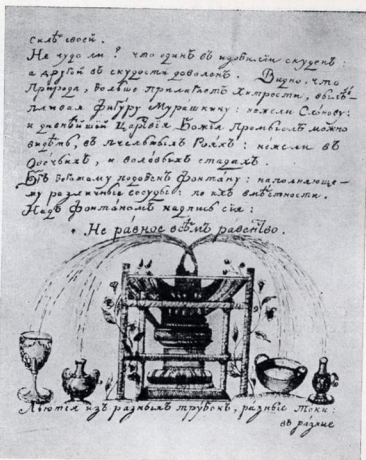 силѣ своей.
Не чудо ли? что одинъ въ изобилiи скуденъ:
а другой въ скудости доволенъ. Видно, что
Природа, больше прилагаетъ хитрости, вылѣп-
ливая фигуру Мурашкину: нежели Слонову:
и дивнѣйшiй Царствiя Божiя Промыслъ можно
видѣть, въ пчельныхъ Рояхъ: нежели въ
Овечьихъ, и воловыхъ стадахъ.
Бгъ богатому подобенъ фонтану: наполняюще-
му различные сосуды: по ихъ вмѣстности.
Надъ фонтаномъ надпись сiя:
Не равное всѣмъ равенство.
Льются изъ разныхъ трубокъ, разные токи:
въ разные